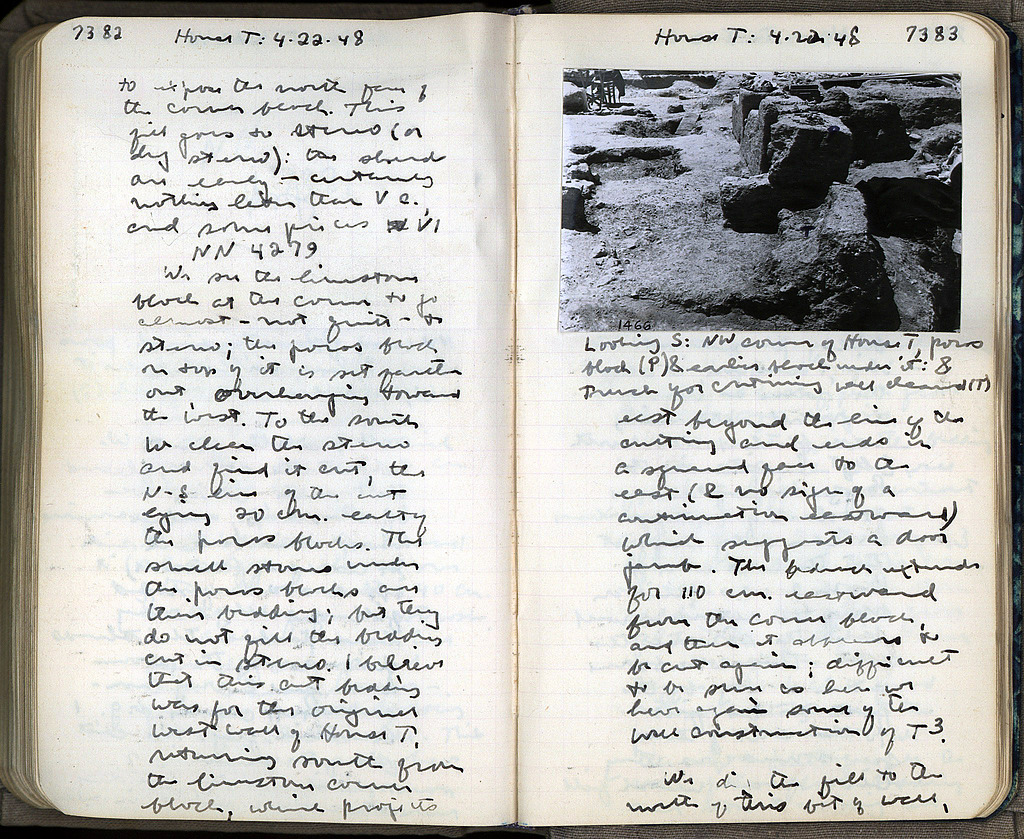 7382 House T: 4.22.48
to expose the north face of
the corner block. This
fill goes to stereo (or
dug stereo): the sherds
are early — certainly
nothing later than V c.,
and some pieces VI
NN 4279
We see the limestone
block at the corner to go
almost - not quite - to
stereo; the poros block
on top of it is set farther
out, overhanging toward
the west. To the south
we clean the stereo
and find it cut, the
N-S line of the cut
lying 30 cm. east of
the poros blocks. The
small stones under
the poros blocks are
their bedding; but they
do not fill the bedding
cut in stereo. I believe
that this cut bedding
was for the original
west wall of House T,
returning south from
the limestone corner
block, which projects
House T: 4.22.48 7383
1466
Looking S: NW corner of House T, poros
block (P) & earlier block under it: &
trench for continuing wall cleaned (T)
east beyond the line of the
cutting and ends in
a squared face to the
east (& no sign of a
continuation eastward)
which suggests a door
jamb. The bedding extends
for 110 cm. eastward
from the corner block,
and then it seems to
be cut again; difficult
to be sure as here we
have again some of the
wall construction of T3.
We dig the fill to the
north of this bit of wall,